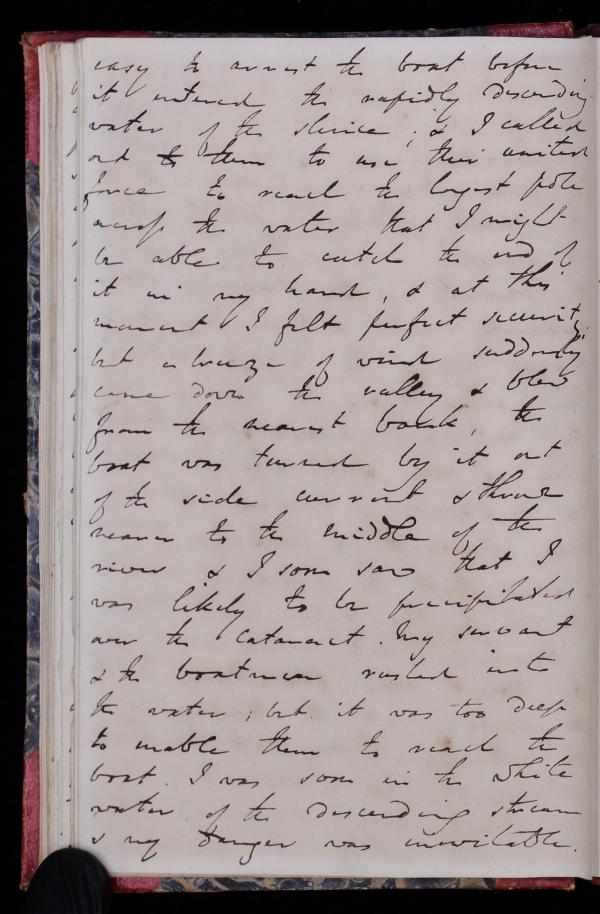 easy to arrest the boat before
it entered the rapidly descending
water of the sluice; & I called
out to them to use their united
force to reach the longest pole
across the water that I might
be able to catch the end of
it in my hand, & at this
moment I felt perfect security;
but a breeze of wind suddenly
came down the valley & blew
from the nearest bank, the
boat was turned by it out
of the side current & thrown
nearer to the middle of the
river & I soon saw that I
was likely to be precipitated
over the cataract. My servant
& the boatman rushed into
the water; but it was too deep
to enable them to reach the
boat. I was soon in the white
water of the descending stream
& my danger was inevitable.